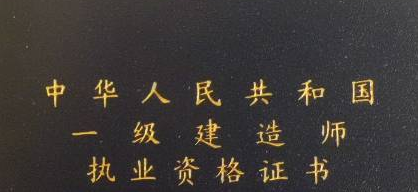 中华人民共和国
一级建造师
执业资格证书